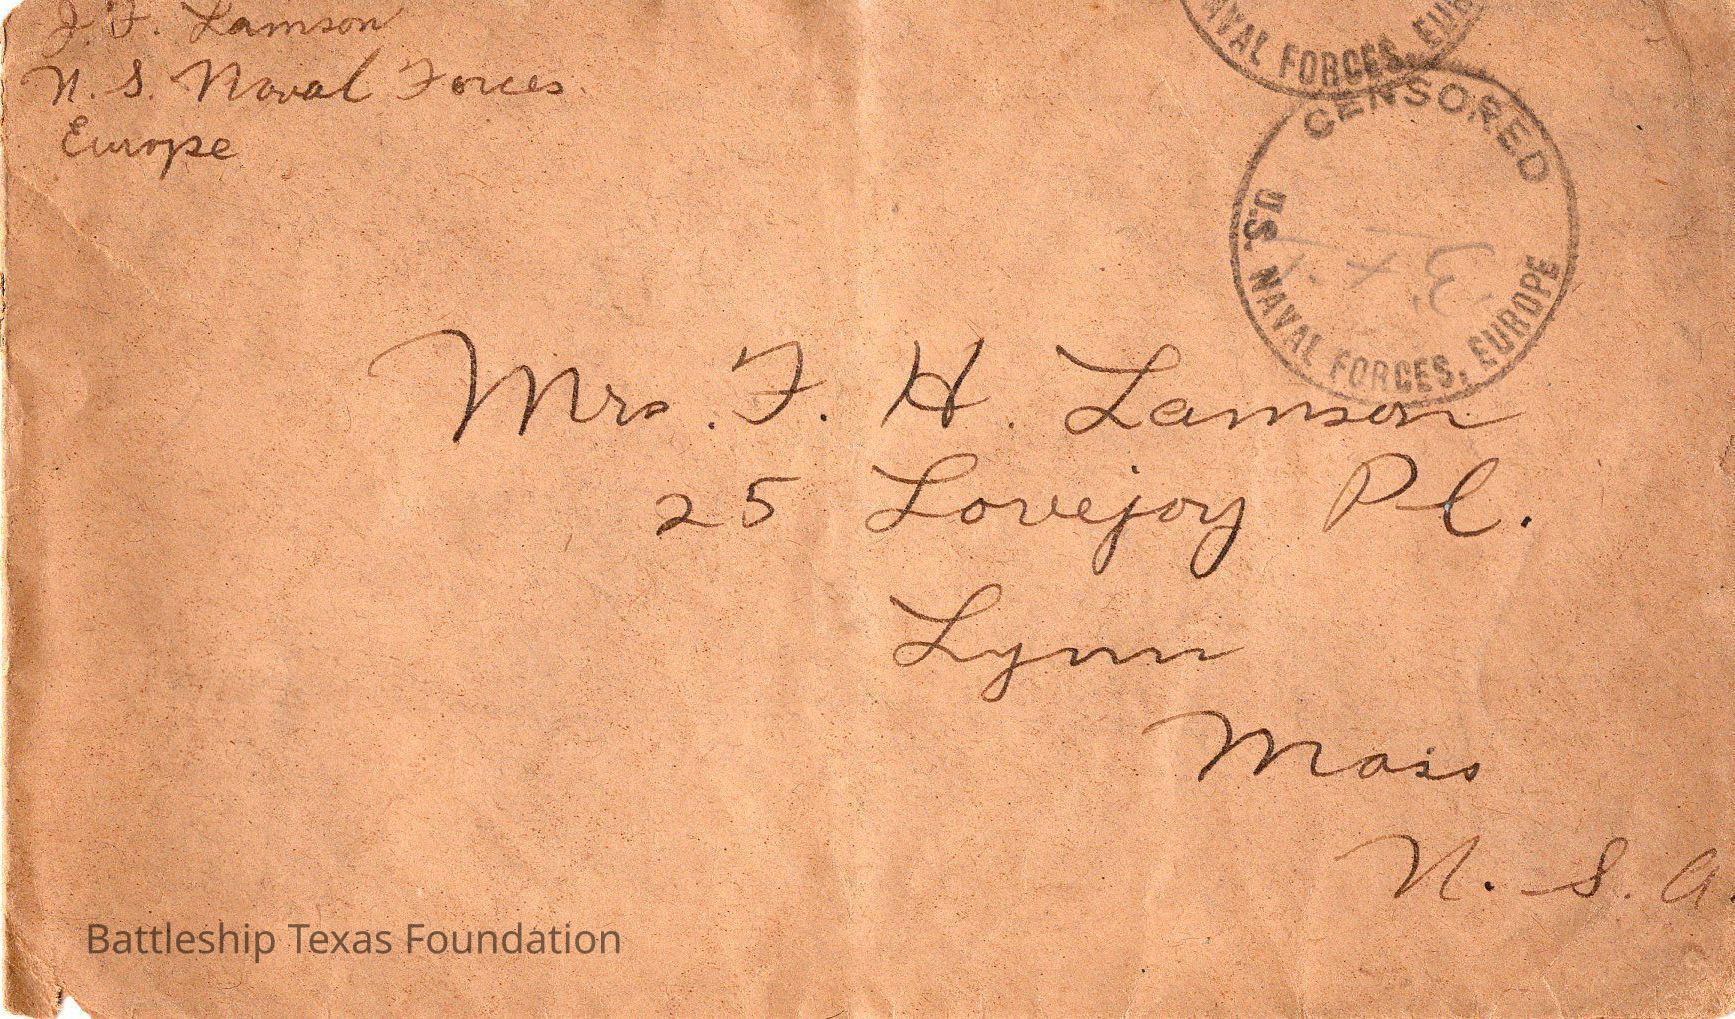 J. F. Lamson
U. S. Naval Forces
Europe
NAVAL FORCES, EUR
CENSORED
U.S. NAVAL FORCES, EUROPE
Mrs. F. H. Lamson
25 Lovejoy Pl.
Lynn
Mass
U. S. A.
Battleship Texas Foundation